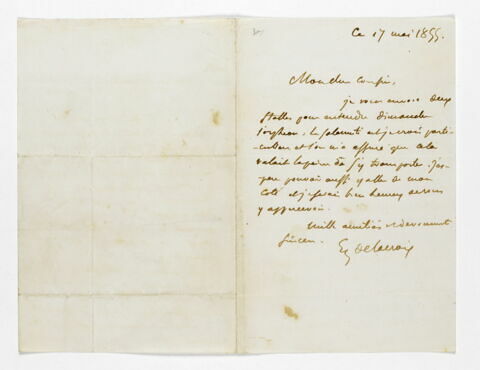 Ce 17 mai 1855.
Mon cher cousin,
je vous envoie deux
stalles pour entendre dimanche
l'orphéon. la solennité est je crois parti-
culière et l'on m'a assuré que cela
valait la peine de s'y transporter. J'es-
père pouvoir aussi y aller de mon
côté et je serai bien heureux de vous
y apercevoir.
Mille amitiés et dévouement
sincère.
Eg Delacroix